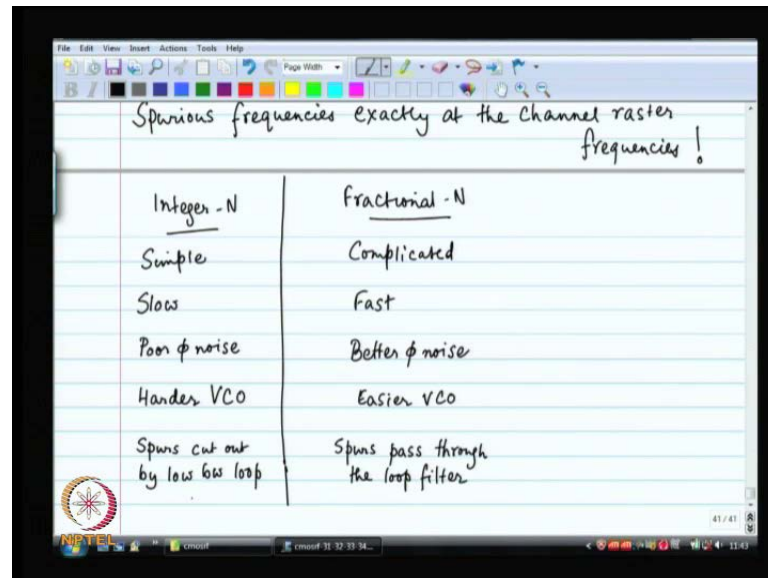 File Edit View Insert Actions Tools Help
Page Width
B I
Spurious frequencies exactly at the channel raster
frequencies !
Integer-N Fractional-N
Simple Complicated
Slow Fast
Poor ϕ noise Better ϕ noise
Harder VCO Easier VCO
Spurs cut out Spurs pass through
by low bw loop the loop filter
41/41
NPTEL
cmosrf cmosrf-31-32-33-34... 11:43